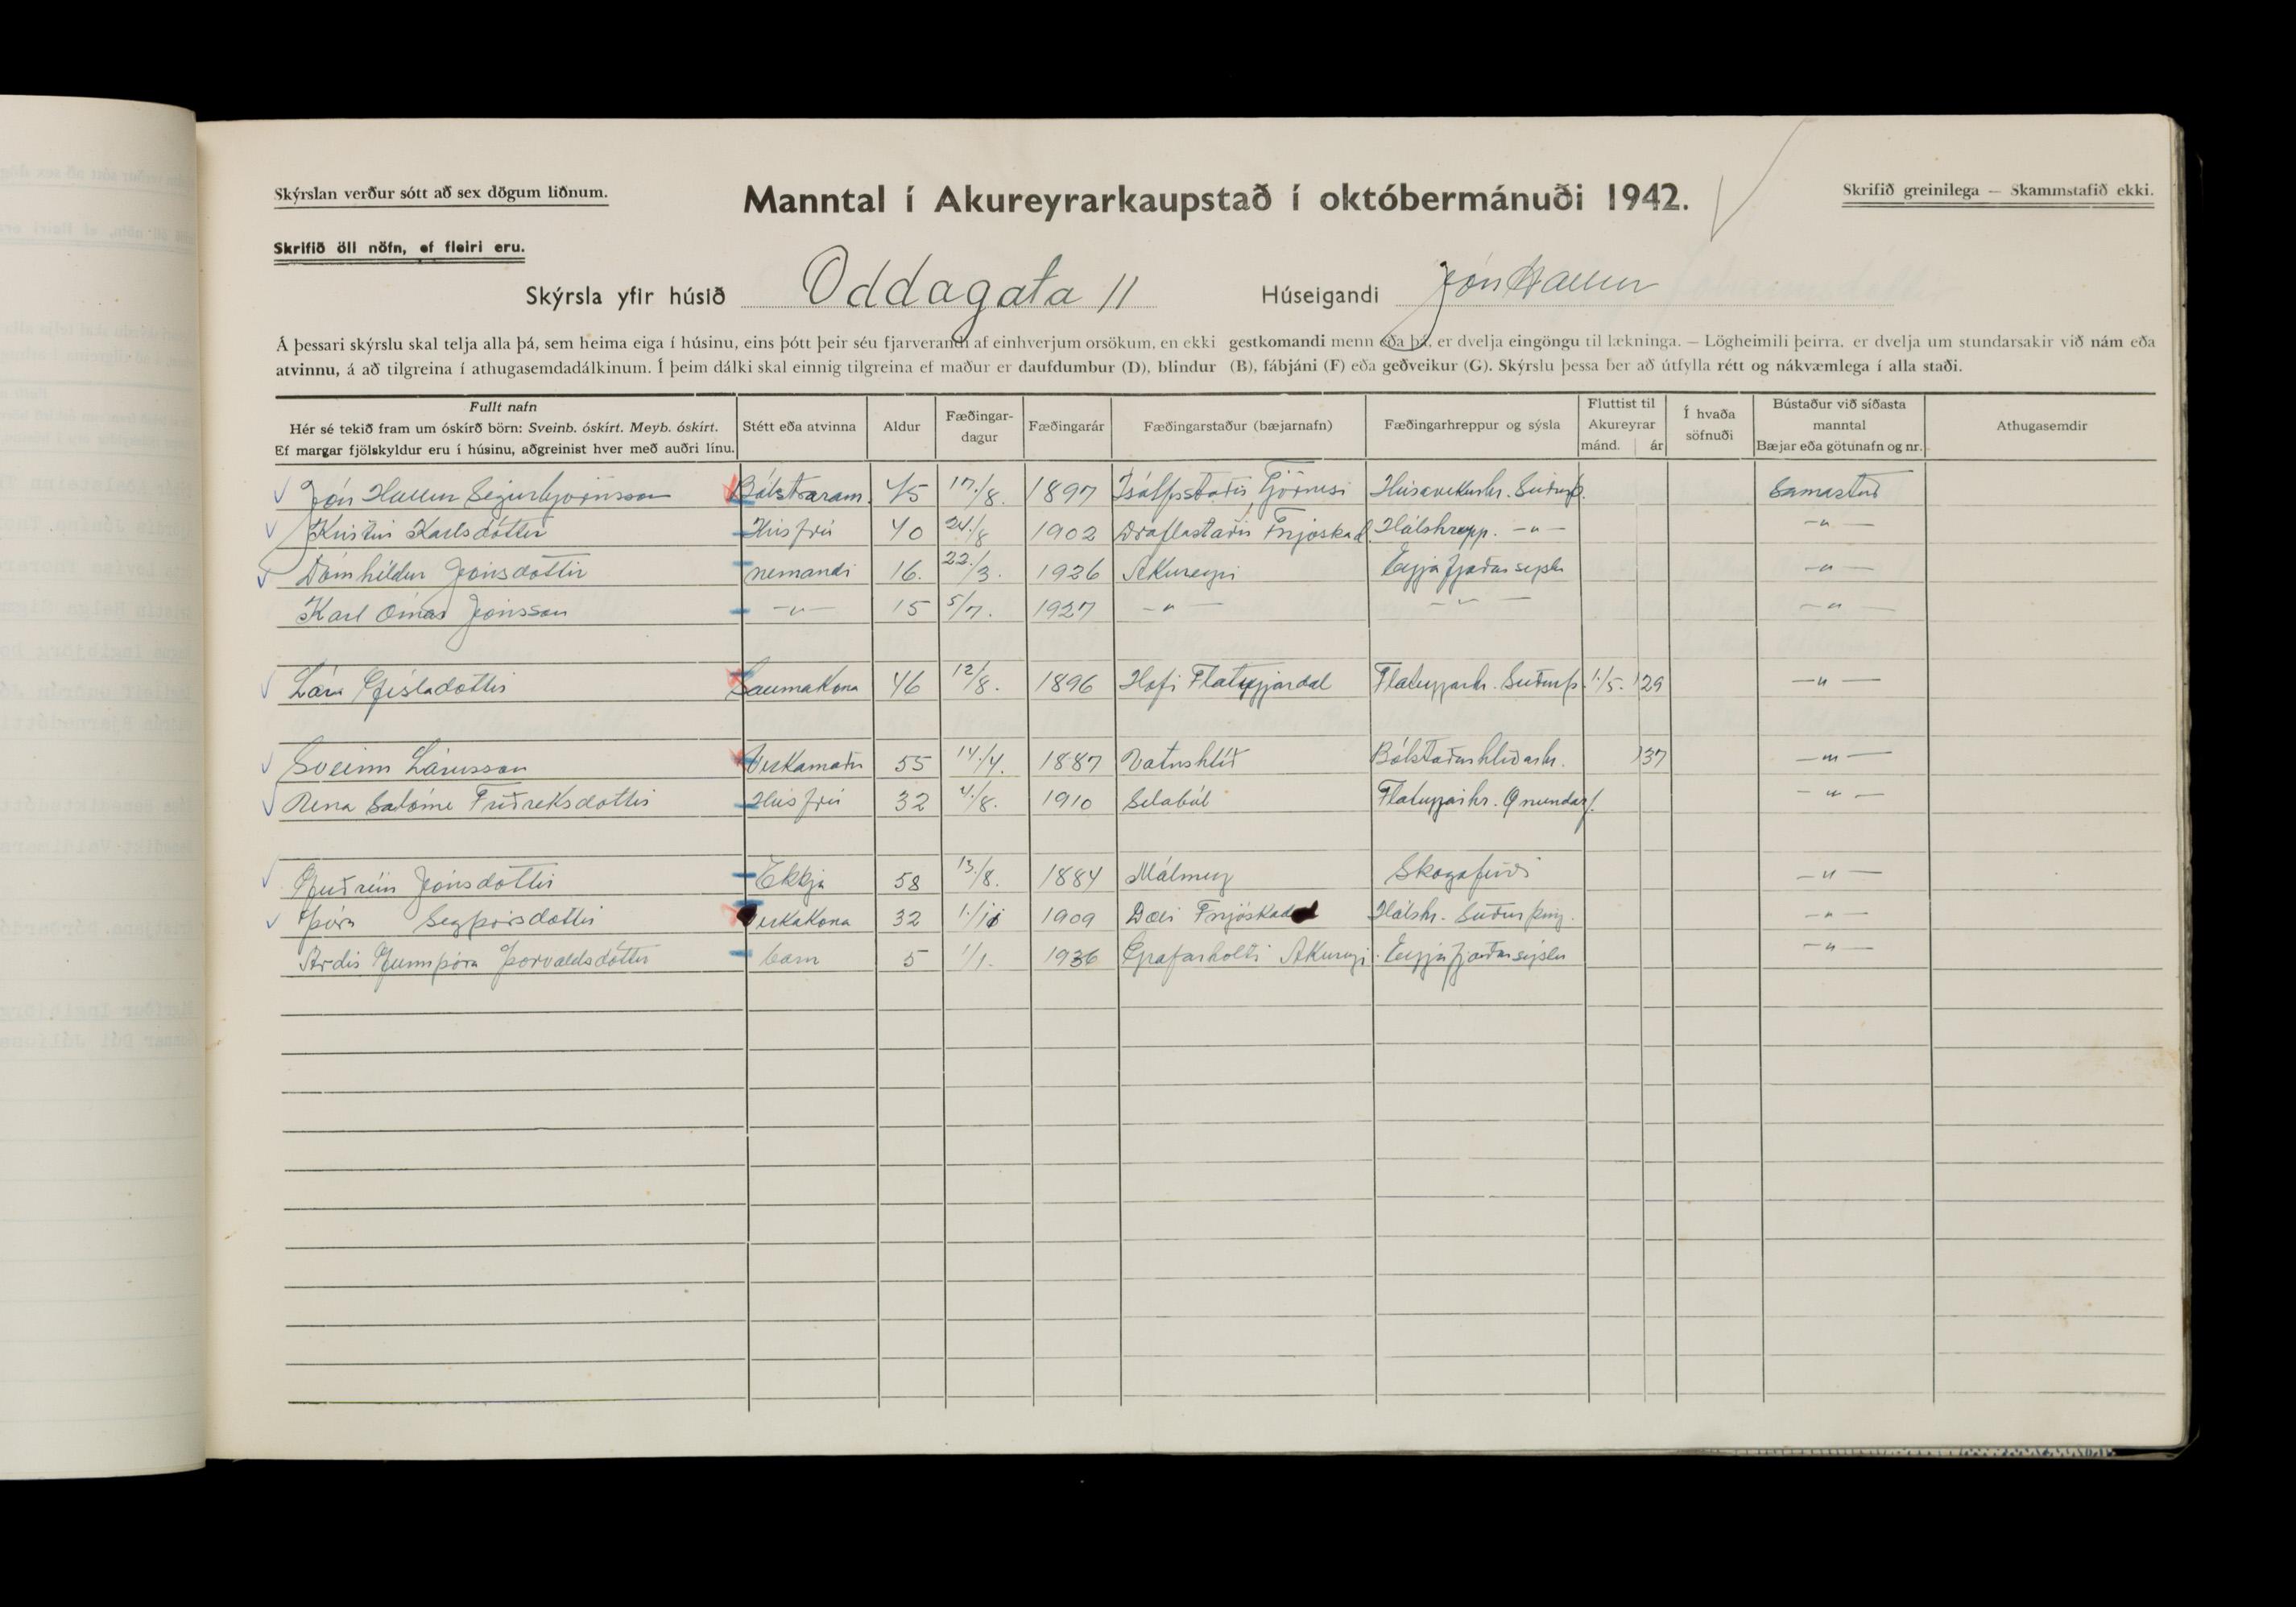 Skýrslan verður sótt að sex dögum liðnum.
Manntal í Akureyrarkaupstað í októbermánuði 1942.
Skrifið greinilega — Skammstafið ekki.
Skrifið öll nöfn, ef fleiri eru.
Skýrsla yfir húsið Oddagata 11 Húseigandi Jón Hallur
Á þessari skýrslu skal telja alla þá, sem heima eiga í húsinu, eins þótt þeir séu fjarverandi af einhverjum orsökum, en ekki gestkomandi menn eða þá, er dvelja eingöngu til lækninga. — Lögheimili þeirra. er dvelja um stundarsakir við nám eða
atvinnu, á að tilgreina í athugasemdadálkinum. Í þeim dálki skal einnig tilgreina ef maður er daufdumbur (D), blindur (B), fábjáni (F) eða geðveikur (G). Skýrslu þessa ber að útfylla rétt og nákvæmlega í alla staði.
Fullt nafn
Hér sé tekið fram um óskírð börn: Sveinb. óskírt. Meyb. óskírt.
Ef margar fjölskyldur eru í húsinu, aðgreinist hver með auðri línu.
Stétt eða atvinna
Aldur
Fæðingar-
dagur
Fæðingarár
Fæðingarstaður (bæjarnafn)
Fæðingarhreppur og sýsla
Fluttist til
Akureyrar
mánd. ár
Í hvaða
söfnuði
Bústaður við síðasta
manntal
Bæjar eða götunafn og nr.
Athugasemdir
Jón Hallur Sigurbjörnsson Bólstraram. 45 17./8. 1897 Ísólfsstaðir, Tjörnesi Húsavíkurhr. Suðurþ. Samastað
Kristín Karlsdóttir Húsfrú 40 24./8 1902 Draflastaðir Fnjóskad. Hálshrepp. -"- -"-
Dómhildur Jónsdóttir nemandi 16. 22./3. 1926 Akureyri Eyjafjarðarsýslu -"-
Karl Ómar Jónsson -"- 15 5/7. 1927 -"- -"- -"-
Lára Gísladóttir Saumakona 46 12/8. 1896 Hofi Flateyjardal Flateyjarhr. Suðurþ. 1./5. 29 -"-
Sveinn Lárusson Verkamaður 55 14./4. 1887 Vatnshlíð Bólstaðarhlíðarhr. 37 -"-
Rena Salóme Friðreksdóttir Húsfrú 32 4./8. 1910 Selaból Flateyjarhr. Önundarf. -"-
Guðrún Jónsdóttir Ekkja 58 13./8. 1884 Málmey Skagafirði -"-
Þóra Sigþórsdóttir Verkakona 32 1./11 1909 Dæli Fnjóskadal Hálshr. Suðurþing. -"-
Árdís Gunnþóra Þorvaldsdóttir barn 5 1/1. 1936 Grafarholti Akureyri. Eyjafjarðarsýslu -"-